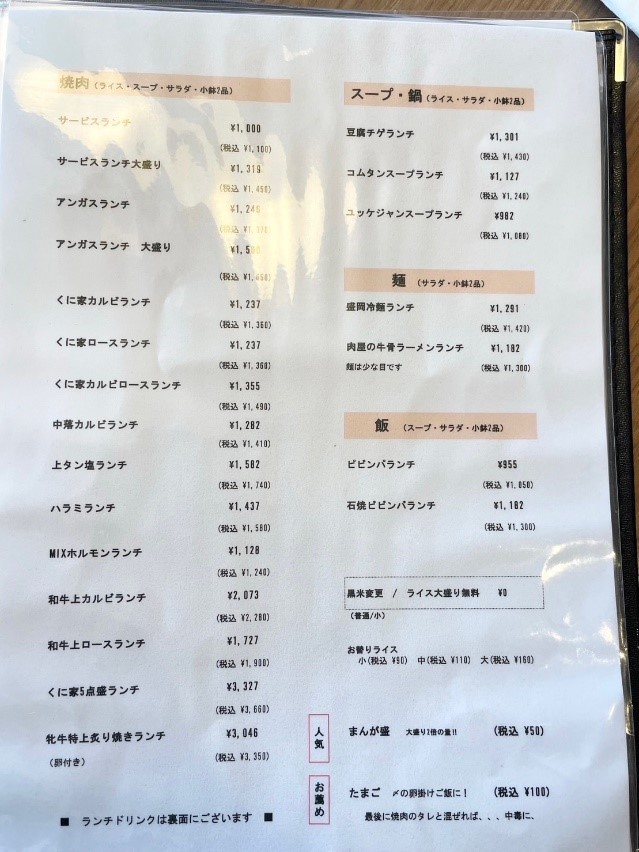 焼肉 (ライス・スープ・サラダ・小鉢2品)
サービスランチ ¥1,000
(税込 ¥1,100)
サービスランチ大盛り ¥1,319
(税込 ¥1,450)
アンガスランチ
アンガスランチ 大盛り
くに家カルビランチ ¥1,237
(税込 ¥1,360)
くに家ロースランチ ¥1,237
(税込 ¥1,360)
くに家カルビロースランチ ¥1,355
(税込 ¥1,490)
中落カルビランチ ¥1,282
(税込 ¥1,410)
上タン塩ランチ ¥1,582
(税込 ¥1,740)
ハラミランチ ¥1,437
(税込 ¥1,580)
MIXホルモンランチ ¥1,128
(税込 ¥1,240)
和牛上カルビランチ ¥2,073
(税込 ¥2,280)
和牛上ロースランチ ¥1,727
(税込 ¥1,900)
くに家5点盛ランチ ¥3,327
(税込 ¥3,660)
牝牛特上炙り焼きランチ ¥3,046
(卵付き) (税込 ¥3,350)
■ ランチドリンクは裏面にございます ■
スープ・鍋 (ライス・サラダ・小鉢2品)
豆腐チゲランチ ¥1,301
(税込 ¥1,430)
コムタンスープランチ ¥1,127
(税込 ¥1,240)
ユッケジャンスープランチ ¥982
(税込 ¥1,080)
麺 (サラダ・小鉢2品)
盛岡冷麺ランチ ¥1,291
(税込 ¥1,420)
肉屋の牛骨ラーメンランチ ¥1,182
麺は少な目です (税込 ¥1,300)
飯 (スープ・サラダ・小鉢2品)
ビビンバランチ ¥955
(税込 ¥1,050)
石焼ビビンバランチ ¥1,182
(税込 ¥1,300)
黒米変更 / ライス大盛り無料 ¥0
(普通/小)
お替りライス
小(税込 ¥90) 中(税込 ¥110) 大(税込 ¥160)
人気
まんが盛 大盛り2倍の量!! (税込 ¥50)
お薦め
たまご 〆の卵掛けご飯に! (税込 ¥100)
最後に焼肉のタレと混ぜれば、、、中毒に、